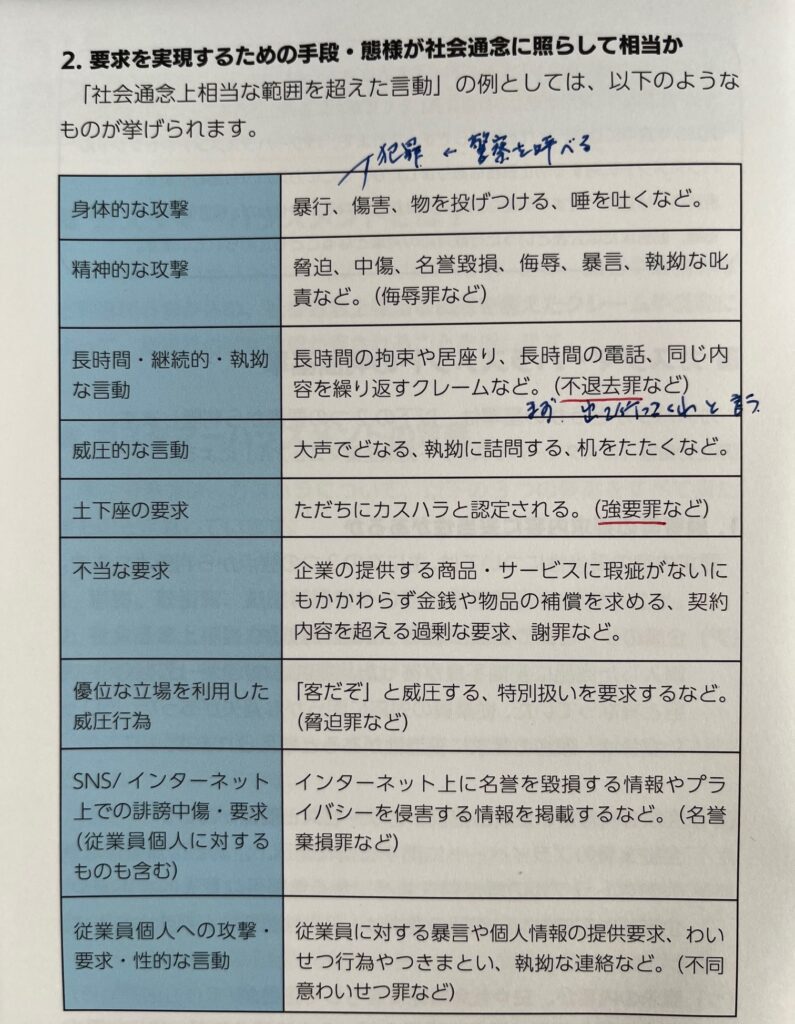 2. 要求を実現するための手段・態様が社会通念に照らして相当か
「社会通念上相当な範囲を超えた言動」の例としては、以下のような
ものが挙げられます。
犯罪 ← 警察を呼べる
身体的な攻撃
暴行、傷害、物を投げつける、唾を吐くなど。
精神的な攻撃
脅迫、中傷、名誉毀損、侮辱、暴言、執拗な叱
責など。（侮辱罪など）
長時間・継続的・執拗
な言動
長時間の拘束や居座り、長時間の電話、同じ内
容を繰り返すクレームなど。（不退去罪など）
まず 出て行ってくれと言う
威圧的な言動
大声でどなる、執拗に詰問する、机をたたくなど。
土下座の要求
ただちにカスハラと認定される。（強要罪など）
不当な要求
企業の提供する商品・サービスに瑕疵がないに
もかかわらず金銭や物品の補償を求める、契約
内容を超える過剰な要求、謝罪など。
優位な立場を利用した
威圧行為
「客だぞ」と威圧する、特別扱いを要求するなど。
（脅迫罪など）
SNS/ インターネット
上での誹謗中傷・要求
（従業員個人に対する
ものも含む）
インターネット上に名誉を毀損する情報やプラ
イバシーを侵害する情報を掲載するなど。（名誉
棄損罪など）
従業員個人への攻撃・
要求・性的な言動
従業員に対する暴言や個人情報の提供要求、わい
せつ行為やつきまとい、執拗な連絡など。（不同
意わいせつ罪など）